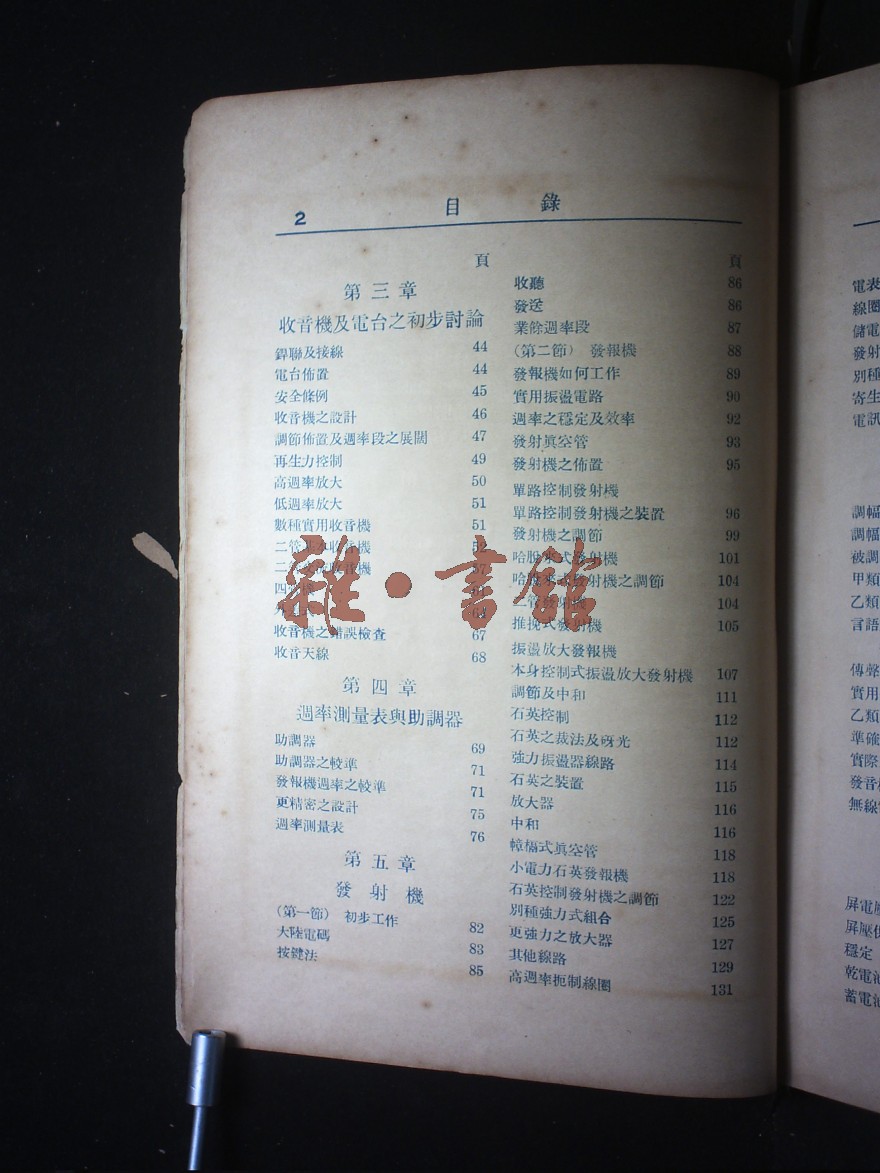 2 目錄
頁
第三章
收音機及電台之初步討論
銲聯及接線 44
電台佈置 44
安全條例 45
收音機之設計 46
調節佈置及週率段之展開 47
再生力控制 49
高週率放大 50
低週率放大 51
數種實用收音機 51
二管基本收音機 52
二管 收音機 57
四
收音機之錯誤檢查 67
收音天線 68
第四章
週率測量表與助調器
助調器 69
助調器之較準 71
發報機週率之較準 71
更精密之設計 75
週率測量表 76
第五章
發射機
(第一節) 初步工作 82
大陸電碼 83
按鍵法 85
頁
收聽 86
發送 86
業餘週率段 87
(第二節) 發報機 88
發報機如何工作 89
實用振盪電路 90
週率之穩定及效率 92
發射眞空管 93
發射機之佈置 95
單路控制發射機
單路控制發射機之裝置 96
發射機之調節 99
哈脫來式發射機 101
哈脫來式發射機之調節 104
二管發射機 104
推挽式發射機 105
振盪放大發報機
本身控制式振盪放大發射機 107
調節及中和 111
石英控制 112
石英之裁法及砑光 112
強力振盪器線路 114
石英之裝置 115
放大器 116
中和 116
幛槅式眞空管 118
小電力石英發報機 118
石英控制發射機之調節 122
別種強力式組合 125
更強力之放大器 127
其他線路 129
高週率扼制線圈 131
電表
線圈
儲電
發射
別種
寄生
電訊
調幅
調幅
被調
甲類
乙類
言語
傳聲
實用
乙類
準確
實際
發音
無線
屏電
屏壓
穩定
乾電池
蓄電池
雜·書館